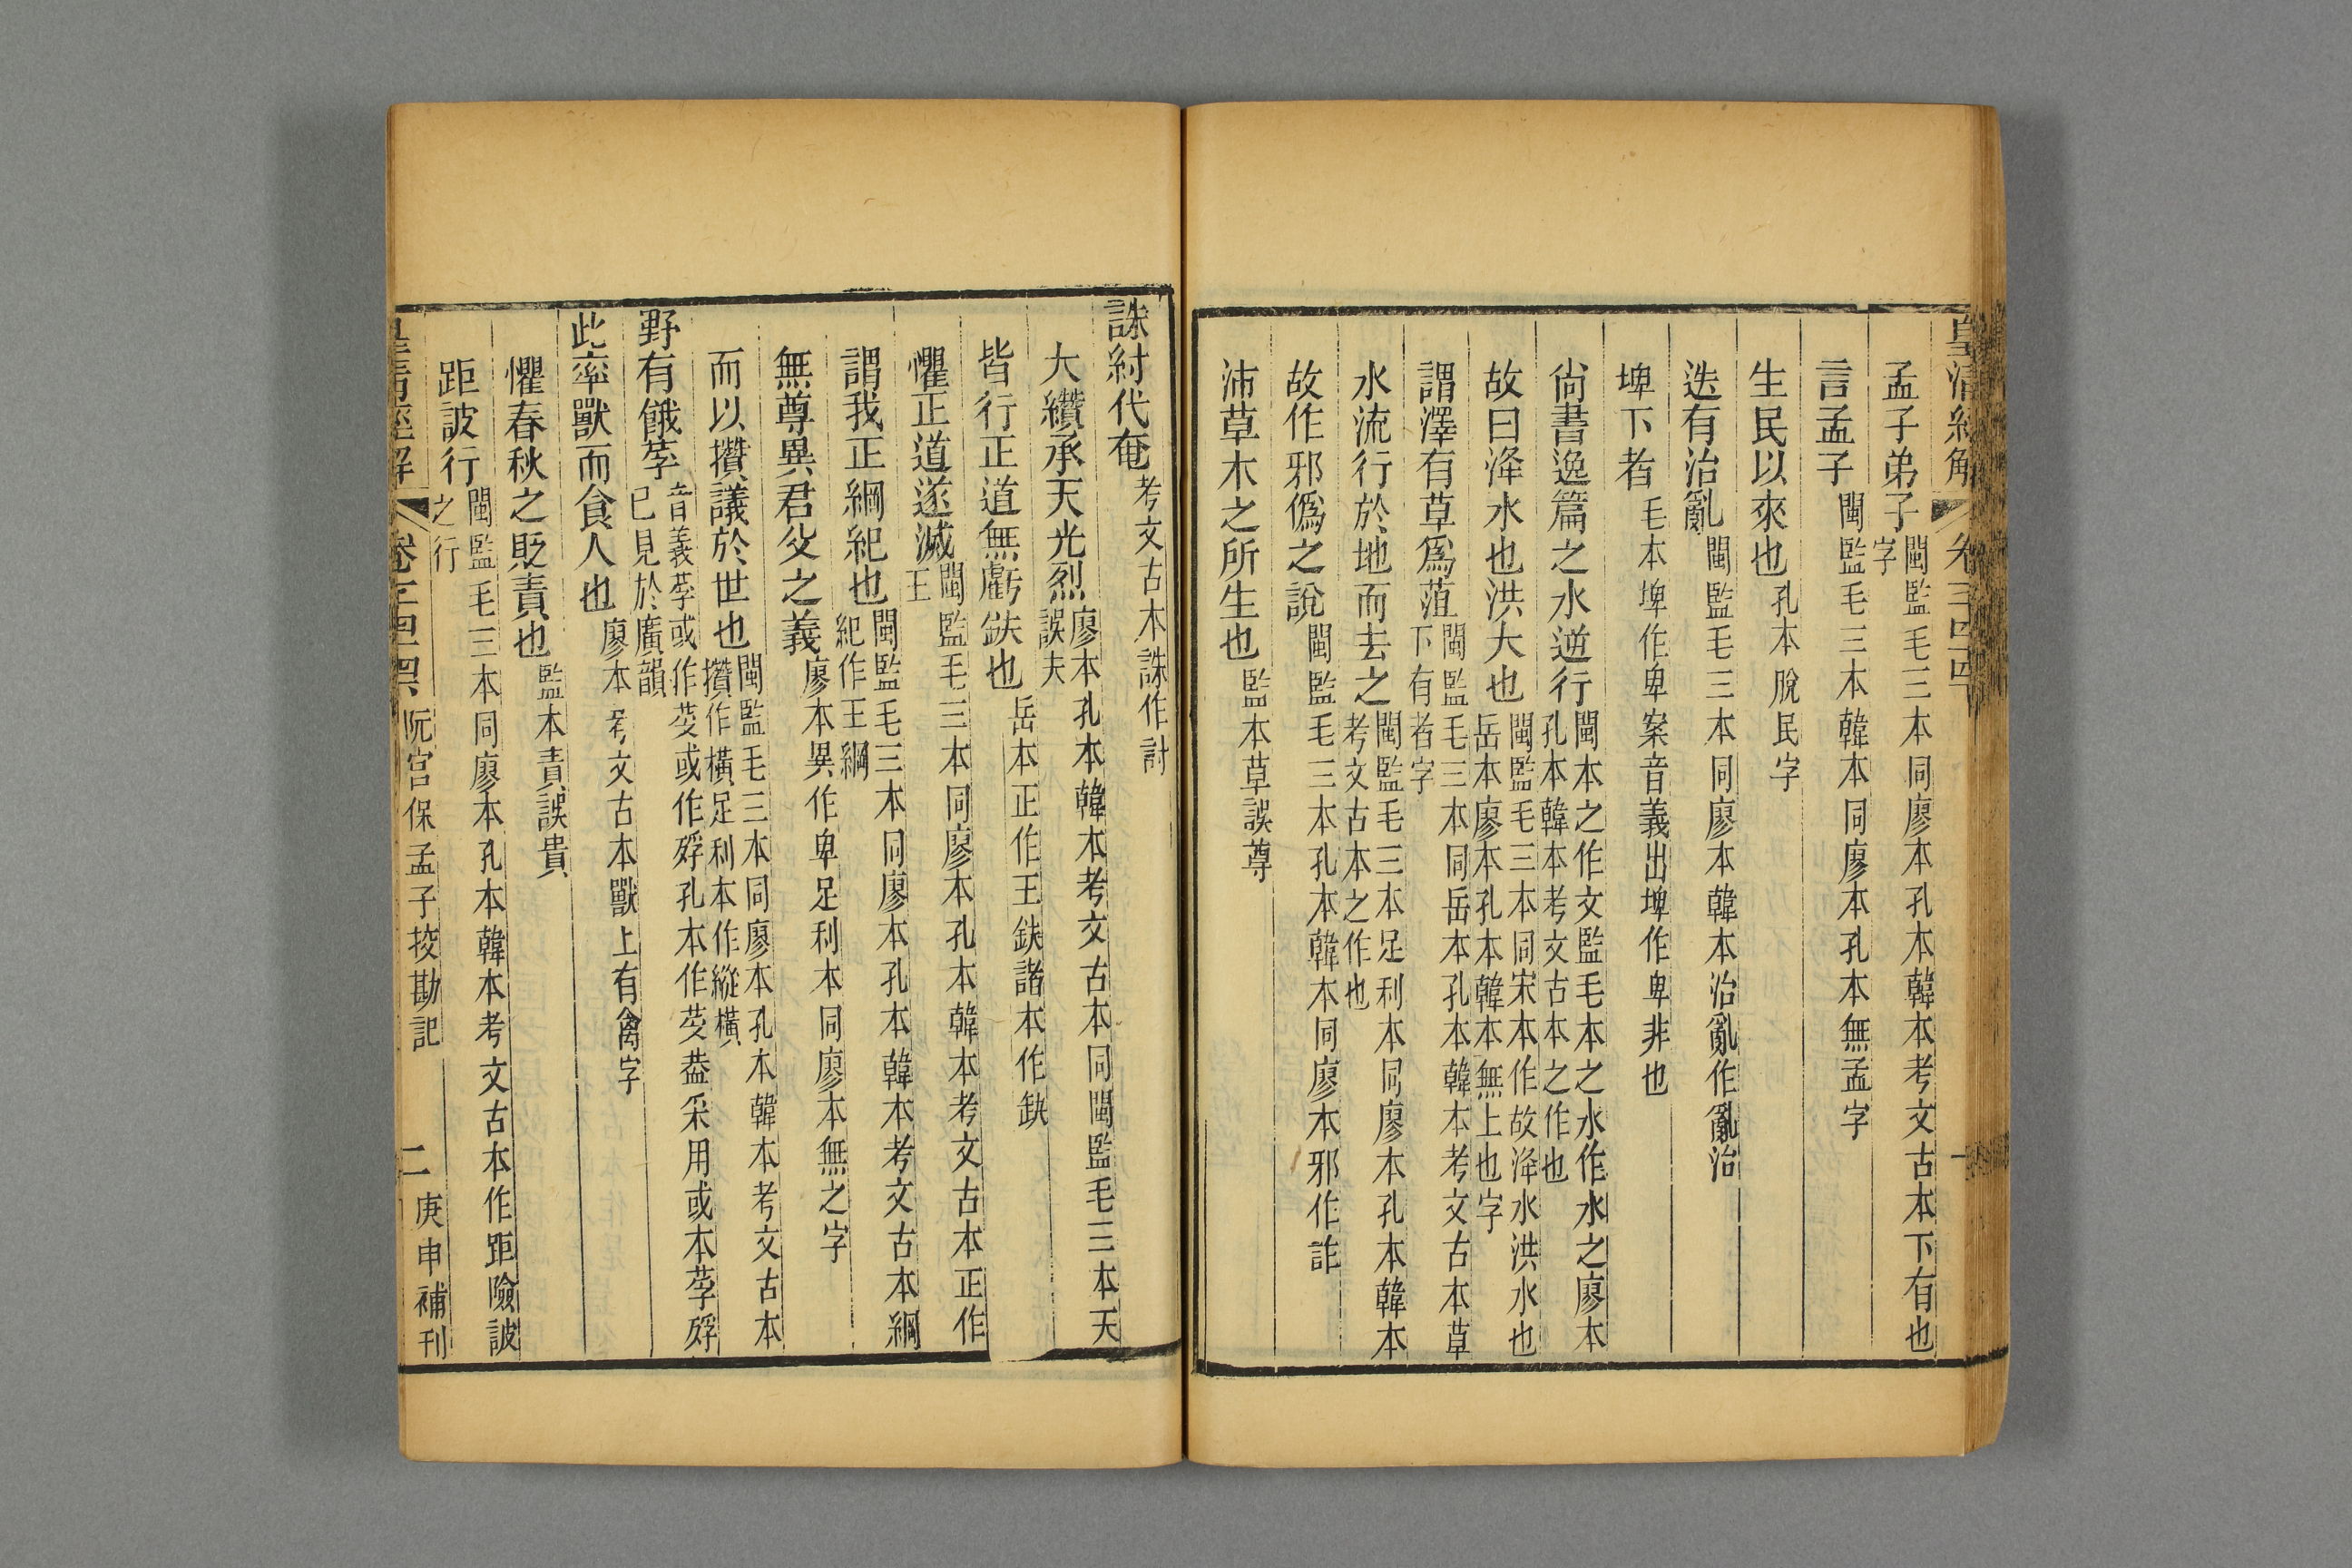 皇清經解 卷二百四 一
孟子弟子 閩監毛三本同廖本孔本韓本考文古本下有也字
言孟子 閩監毛三本韓本同廖本孔本無孟字
生民以來也 孔本脫民字
迭有治亂 閩監毛三本同廖本韓本治亂作亂治
埤下者 毛本埤作卑案音義出埤作卑非也
尙書逸篇之水逆行 閩本之作文監毛本之水作水之廖本孔本韓本考文古本之作也
故曰洚水也洪大也 閩監毛三本同宋本作故洚水洪水也岳本廖本孔本韓本無上也字
謂澤有草爲菹 閩監毛三本同岳本孔本韓本考文古本草下有者字
水流行於地而去之 閩監毛三本足利本同廖本孔本韓本考文古本之作也
故作邪僞之說 閩監毛三本孔本韓本同廖本邪作詐
沛草木之所生也 監本草誤尊
誅紂代奄 考文古本誅作討
大纘承天光烈 廖本孔本韓本考文古本同閩監毛三本天誤夫
皆行正道無虧鈌也 岳本正作王鈌諸本作缺
懼正道遂滅 閩監毛三本同廖本孔本韓本考文古本正作王
謂我正綱紀也 閩監毛三本同廖本孔本韓本考文古本綱紀作王綱
無尊異君父之義 廖本異作卑足利本同廖本無之字
而以攢議於世也 閩監毛三本同廖本孔本韓本考文古本攢作橫足利本作縱橫
野有餓莩 音義莩或作芟或作殍孔本作芟葢采用或本莩殍已見於廣韻
此率獸而食人也 廖本考文古本獸上有禽字
懼春秋之貶責也 監本責誤貴
距詖行 閩監毛三本同廖本孔本韓本考文古本作距險詖之行
皇清經解 卷 阮宮保孟子挍勘記 二 庚申補刊